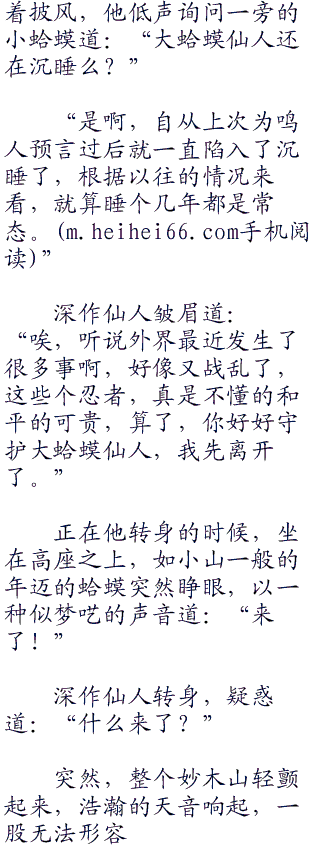 着披风，他低声询问一旁的
小蛤蟆道：“大蛤蟆仙人还
在沉睡么？”
“是啊，自从上次为鸣
人预言过后就一直陷入了沉
睡了，根据以往的情况来
看，就算睡个几年都是常
态。(m.heihei66.com手机阅
读)”
深作仙人皱眉道：
“唉，听说外界最近发生了
很多事啊，好像又战乱了，
这些个忍者，真是不懂的和
平的可贵，算了，你好好守
护大蛤蟆仙人，我先离开
了。”
正在他转身的时候，坐
在高座之上，如小山一般的
年迈的蛤蟆突然睁眼，以一
种似梦呓的声音道：“来
了！”
深作仙人转身，疑惑
道：“什么来了？”
突然，整个妙木山轻颤
起来，浩瀚的天音响起，一
股无法形容